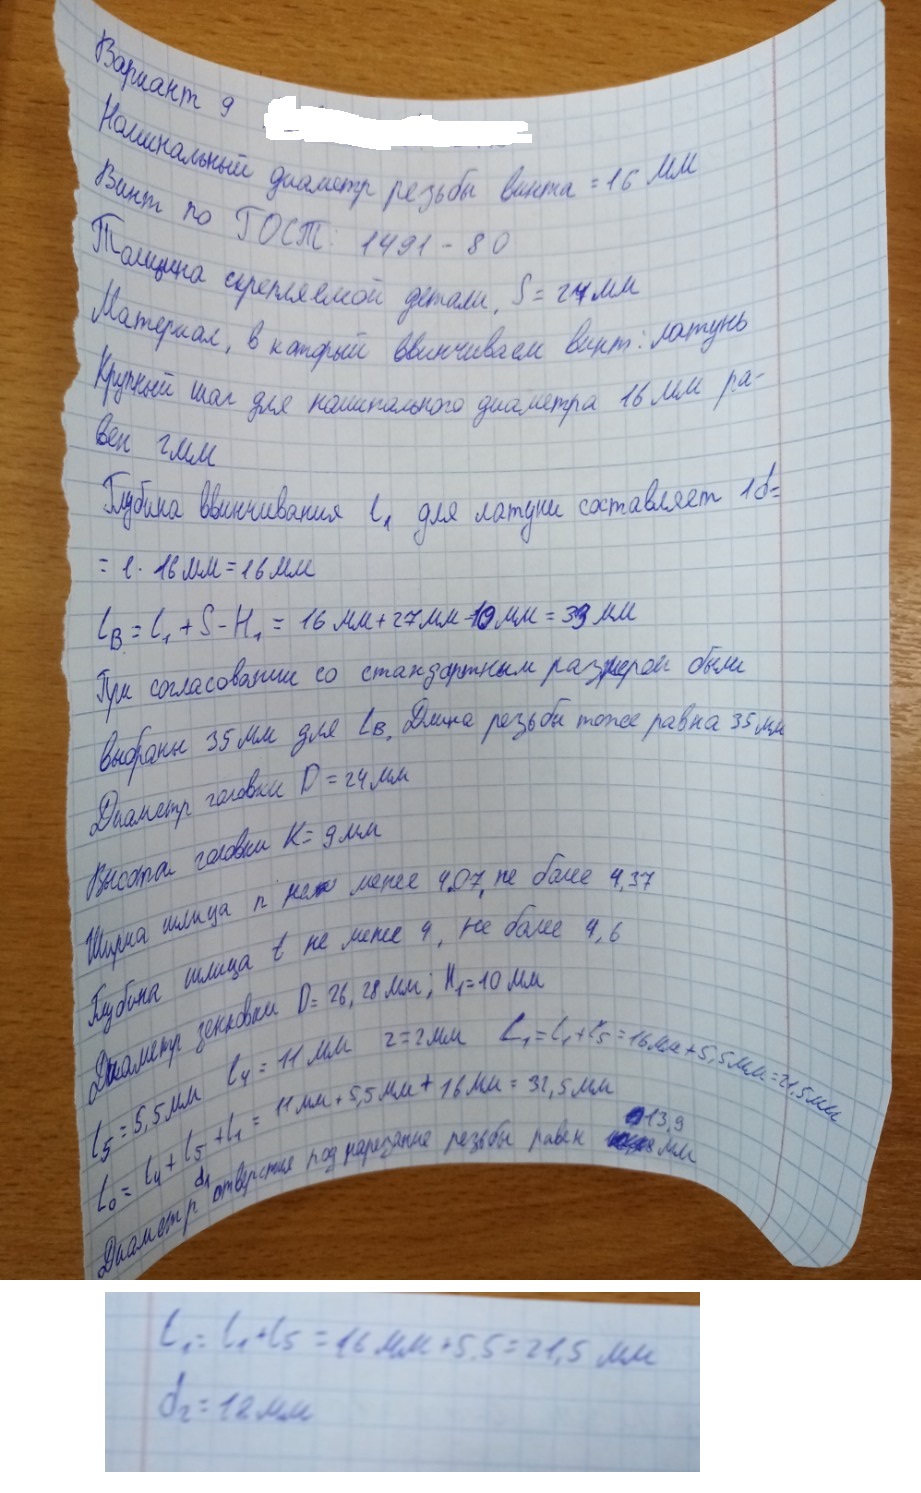 Вариант 9
Номинальный диаметр резьбы винта = 16 мм
Винт по ГОСТ: 1491-80
Толщина скрепляемой детали, S = 27мм
Материал, в который ввинчиваем винт: латунь
Крупный шаг для номинального диаметра 16 мм ра-
вен 2мм
Глубина ввинчивания l₁ для латуни составляет 1d=
= 1·16мм=16мм
lв = l₁ + S - H₁ = 16 мм+27мм-10мм = 33 мм
При согласовании со стандартным размером были
выбраны 35 мм для lв. Длина резьбы тоже равна 35мм
Диаметр головки D = 24мм
Высота головки K = 9мм
Ширина шлица n не менее 4,07, не более 4,37
Глубина шлица t не менее 4, не более 4,6
Диаметр зенковки D = 26, 28мм; H₁=10 мм
l₅ = 5,5мм l₄ = 11 мм z=2мм L₁=l₁+l₅=16мм+5,5мм=21,5мм
l₀ = l₄ + l₅ + l₁ = 11мм+5,5мм+16мм = 32,5мм
Диаметр d₁ отверстие под нарезание резьбы равен 13,9 мм
L₁ = l₁+l₅ = 16 мм+5.5=21,5 мм
d₂=18мм